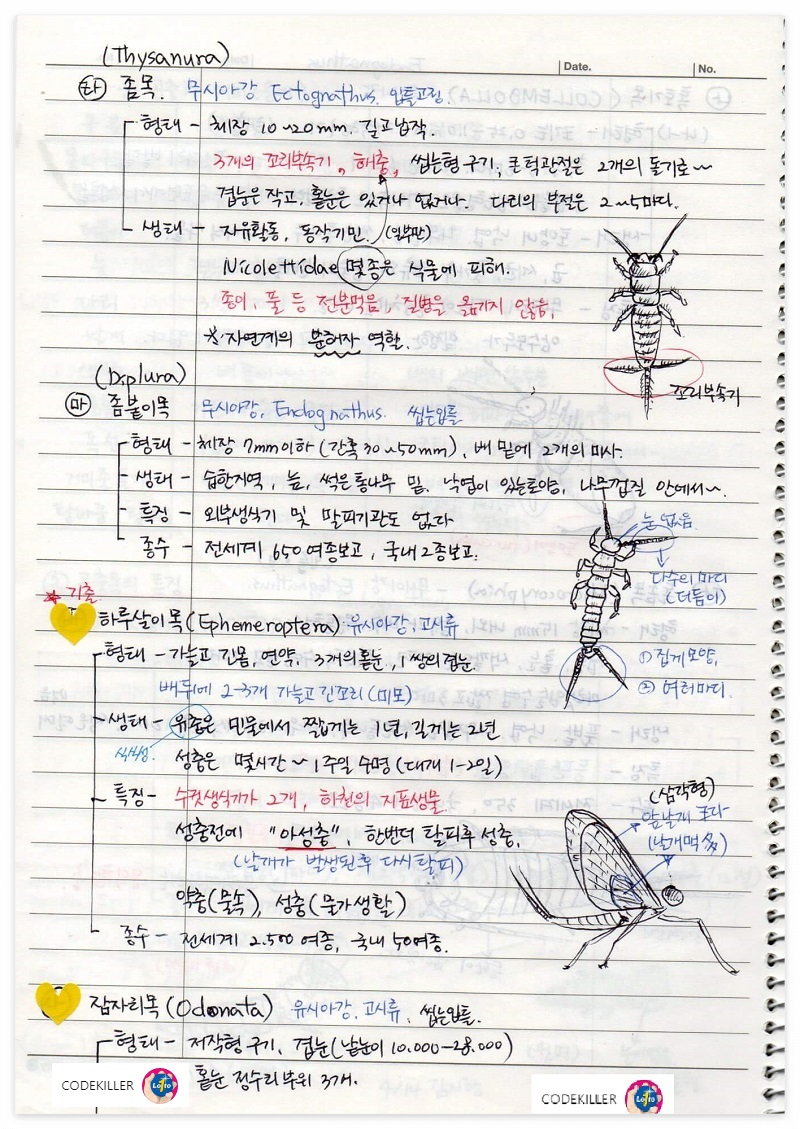 Date.
No.
(Thysanura)
㉺ 좀목. 무시아강 Ectognathus. 입틀고정
형태 - 체장 10~20mm. 길고납작.
3개의 꼬리부속기, 해충, 씹는형 구기, 큰턱관절은 2개의 돌기로~
겹눈은 작고, 홑눈은 있거나 없거나. 다리의 부절은 2~5마디.
생태 - 자유활동, 동작기민. (일부만)
Nicolettidae 몇종은 식물에 피해.
종이, 풀 등 전분먹음, 질병을 옮기지 않음,
※ 자연계의 분해자 역할.
꼬리부속기
(Diplura)
㉲ 좀붙이목 무시아강, Endognathus. 씹는입틀
형태 - 체장 7mm이하 (간혹 30~50mm), 배 밑에 2개의 미사.
생태 - 습한지역, 늪, 썩은통나무 밑. 낙엽이 있는토양, 나무껍질 안에서~.
특징 - 외부생식기 및 말피기관도 없다
종수 - 전세계 650여종보고, 국내 2종보고.
눈 없음
다수의 마디
(더듬이)
① 집게모양,
② 여러마디.
* 기출
하루살이목 (Ephemeroptera) 유시아강, 고시류
형태 - 가늘고 긴몸, 연약, 3개의홑눈, 1쌍의겹눈.
배두에 2-3개 가늘고 긴꼬리 (미모)
생태 - 유충은 민물에서 짧게는 1년, 길게는 2년
식식성.
성충은 몇시간 ~ 1주일 수명 (대개 1-2일)
특징 - 수컷생식기가 2개, 하천의 지표생물.
성충전에 "아성충", 한번더 탈피후 성충,
(날개가 발생된후 다시탈피)
약충(물속), 성충(물가생활)
종수 - 전세계 2.500여종, 국내 50여종.
(삼각형)
앞날개 크다
(날개맥 多)
잠자리목 (Odonata) 유시아강, 고시류, 씹는입틀.
형태 - 저작형 구기, 겹눈(낱눈이 10.000-28.000)
홑눈 정수리부위 3개.
CODEKILLER Lotto
CODEKILLER Lotto